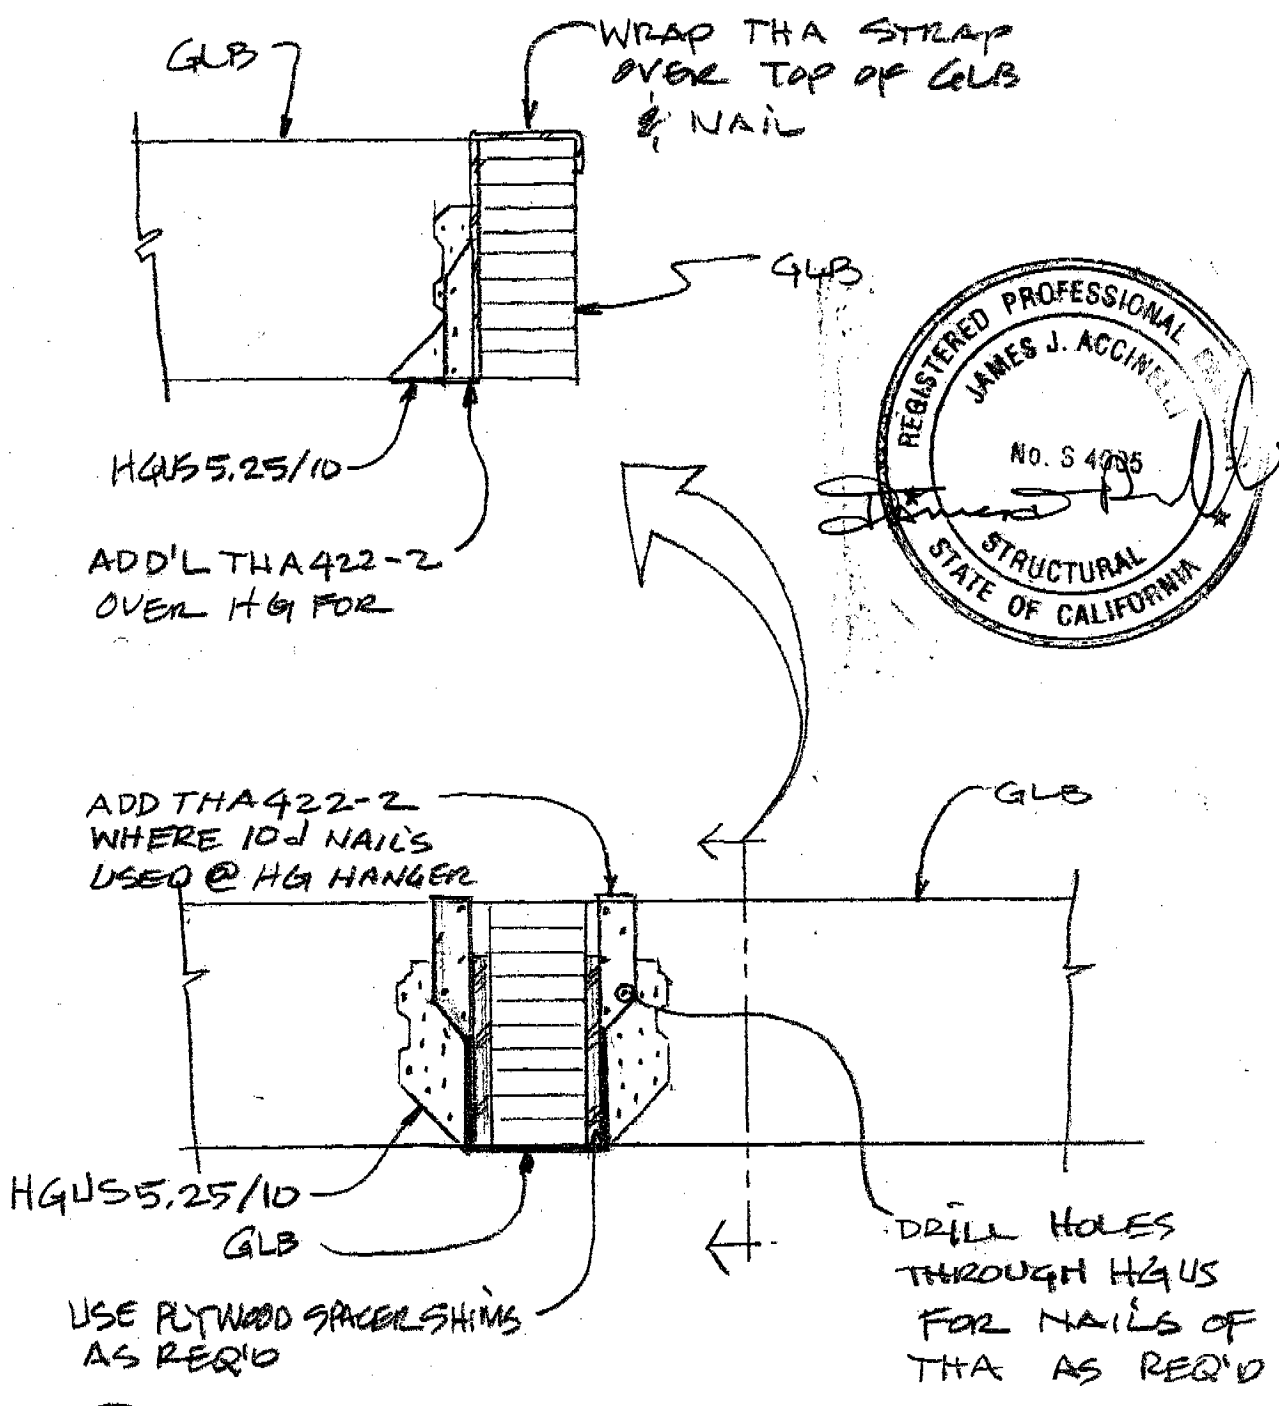 GLB
WRAP THA STRAP
OVER TOP OF GLB
& NAIL
GLB
REGISTERED PROFESSIONAL
JAMES J. ACCINELLI
No. S 4085
STRUCTURAL
STATE OF CALIFORNIA
HGUS5.25/10
ADD'L THA422-2
OVER HG FOR
ADD THA422-2
WHERE 10d NAILS
USED @ HG HANGER
GLB
HGUS5.25/10
GLB
USE PLYWOOD SPACER SHIMS
AS REQ'D
DRILL HOLES
THROUGH HGUS
FOR NAILS OF
THA AS REQ'D